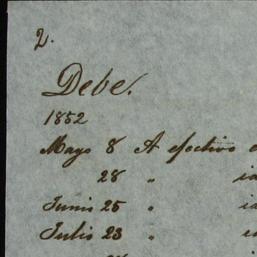 2.
Debe.
1852
Mayo 8 A efectivo
28 "
Junio 25 "
Julio 23 "